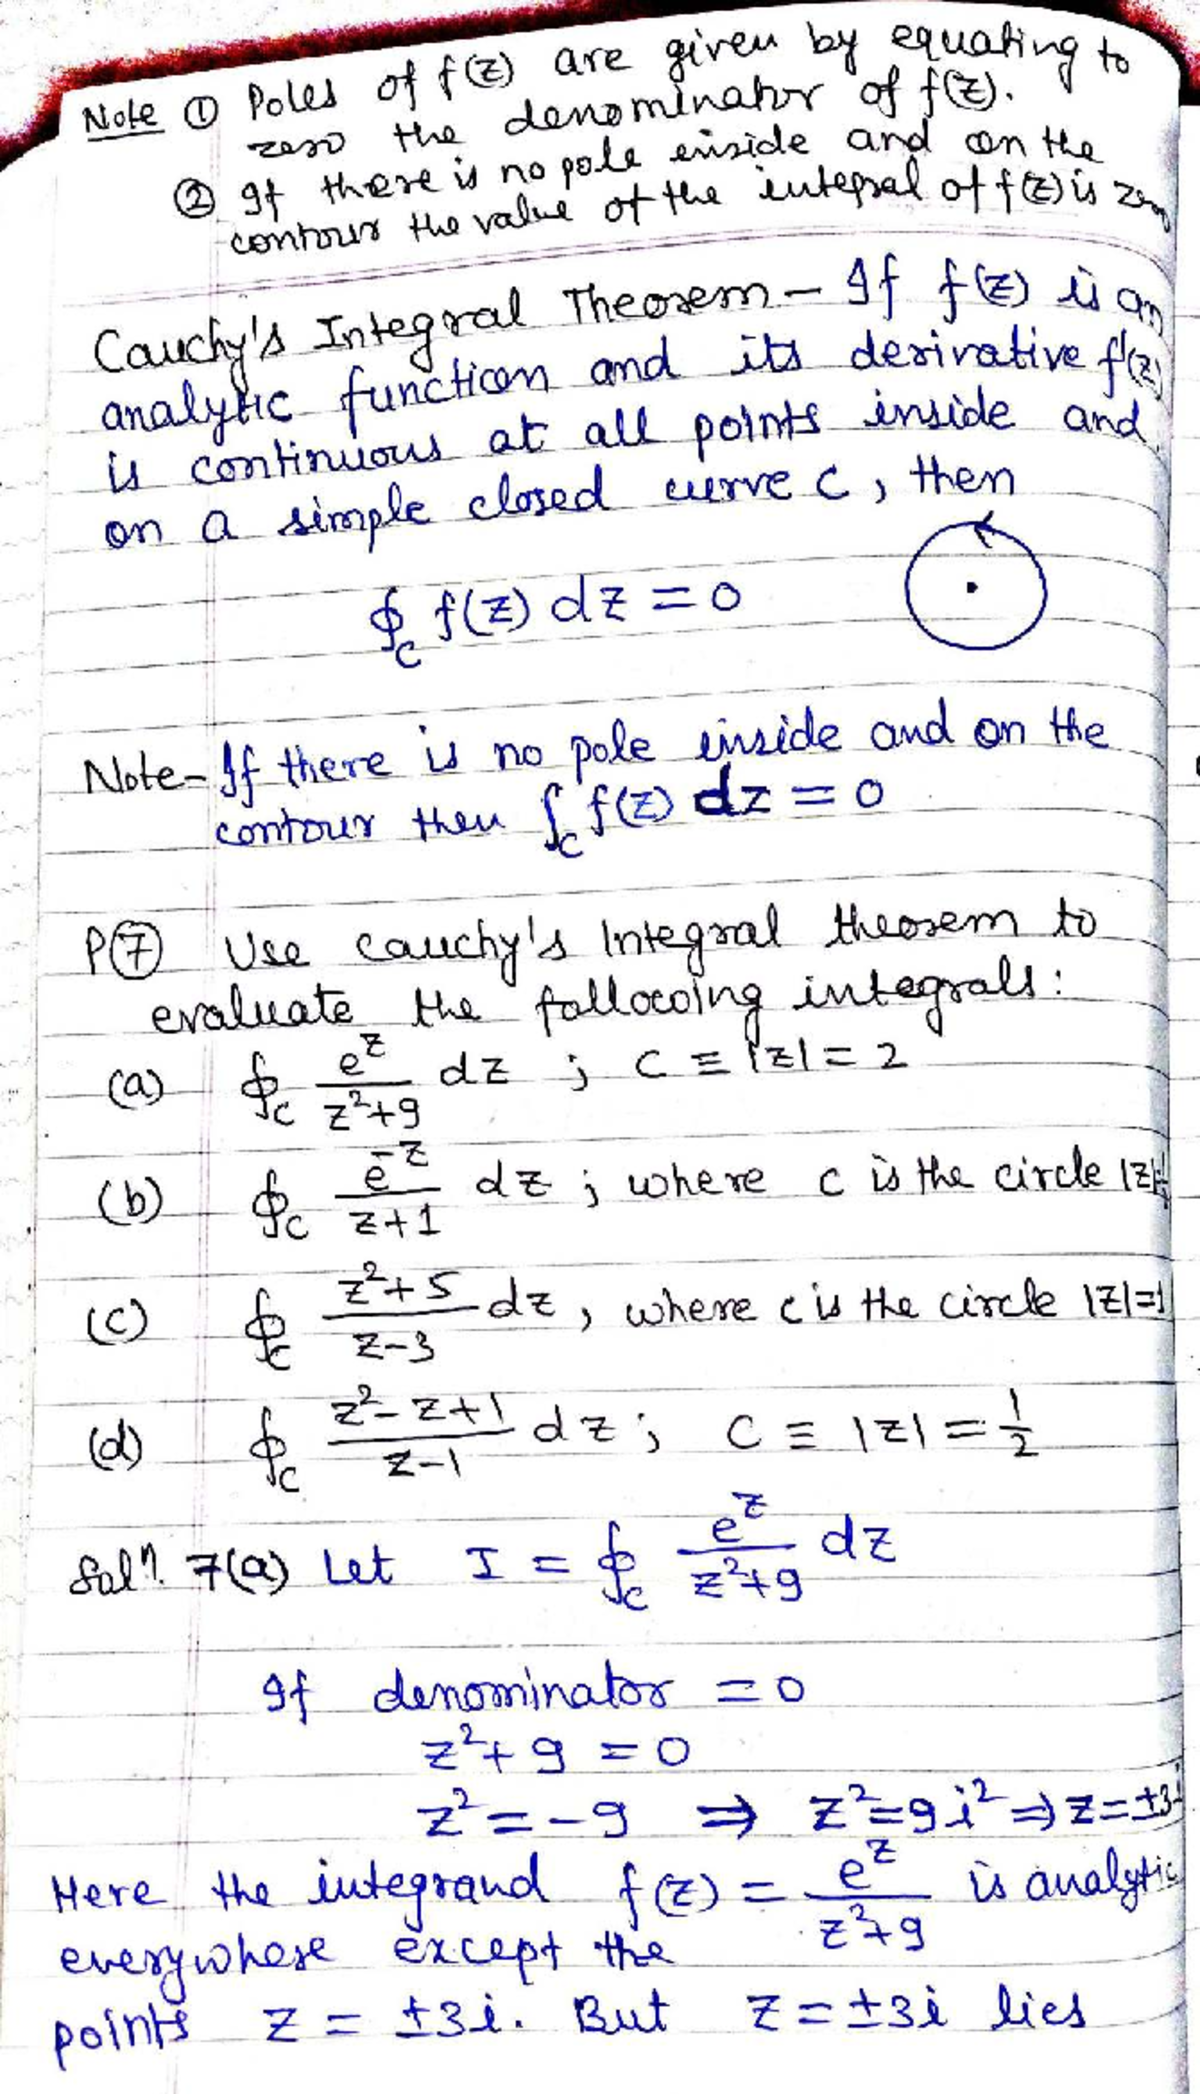 Note ① Poles of f(z) are given by equating to
zero the denominator of f(z).
② If there is no pole inside and on the
contour the value of the integral of f(z) is zero
Cauchy's Integral Theorem - If f(z) is an
analytic function and its derivative f'(z)
is continuous at all points inside and
on a simple closed curve C, then
∮_C f(z) dz = 0
Note - If there is no pole inside and on the
contour then ∫_C f(z) dz = 0
P⑦ Use Cauchy's Integral theorem to
evaluate the following integrals:
(a) ∮_C e^z/(z²+9) dz ; C ≡ |z| = 2
(b) ∮_C e^-z/(z+1) dz ; where C is the circle |z|
(c) ∮_C (z²+5)/(z-3) dz, where C is the circle |z|=1
(d) ∮_C (z²-z+1)/(z-1) dz ; C ≡ |z| = 1/2
Solⁿ. 7(a) Let I = ∮_C e^z/(z²+9) dz
If denominator = 0
z²+9 = 0
z² = -9 ⇒ z²=9i² ⇒ z=±3i
Here the integrand f(z) = e^z/(z²+9) is analytic
everywhere except the
points z = ±3i. But z = ±3i lies